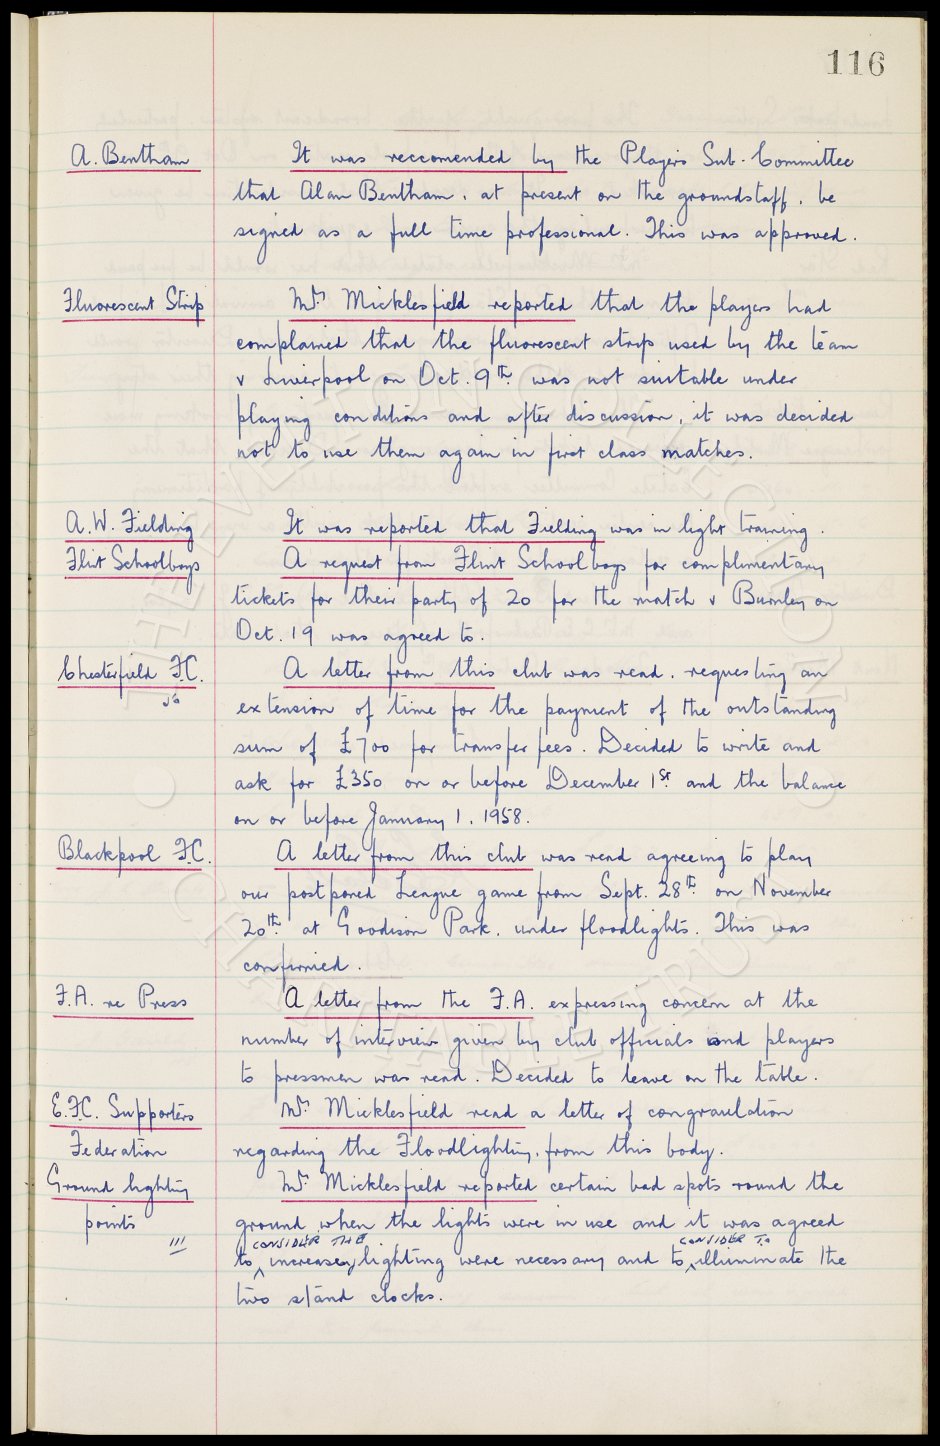 116
A. Bentham It was reccomended by the Players Sub-Committee
that Alan Bentham, at present on the groundstaff, be
signed as a full time professional. This was approved.
Fluorescent Strip Mr. Micklesfield reported that the players had
complained that the fluorescent strip used by the team
v Liverpool on Oct. 9th. was not suitable under
playing conditions and after discussion, it was decided
not to use them again in first class matches.
A.W. Fielding It was reported that Fielding was in light training.
Flint Schoolboys A request from Flint Schoolboys for complimentary
tickets for their party of 20 for the match v Burnley on
Oct. 19 was agreed to.
Chesterfield F.C. A letter from this club was read, requesting an
extension of time for the payment of the outstanding
sum of £700 for transfer fees. Decided to write and
ask for £350 on or before December 1st. and the balance
on or before January 1, 1958.
Blackpool F.C. A letter from this club was read agreeing to play
our postponed League game from Sept. 28th. on November
20th. at Goodison Park, under floodlights. This was
confirmed.
F.A. re Press A letter from the F.A. expressing concern at the
number of interviews given by club officials and players
to pressmen was read. Decided to leave on the table.
E.F.C. Supporters Mr. Micklesfield read a letter of congraulation
Federation regarding the Floodlighting, from this body.
Ground lighting Mr. Micklesfield reported certain bad spots round the
points ground when the lights were in use and it was agreed
CONSIDER THE CONSIDER TO
to increase lighting were necessary and to illuminate the
two stand clocks.
THE EVERTON COLLECTION
CHARITABLE TRUST